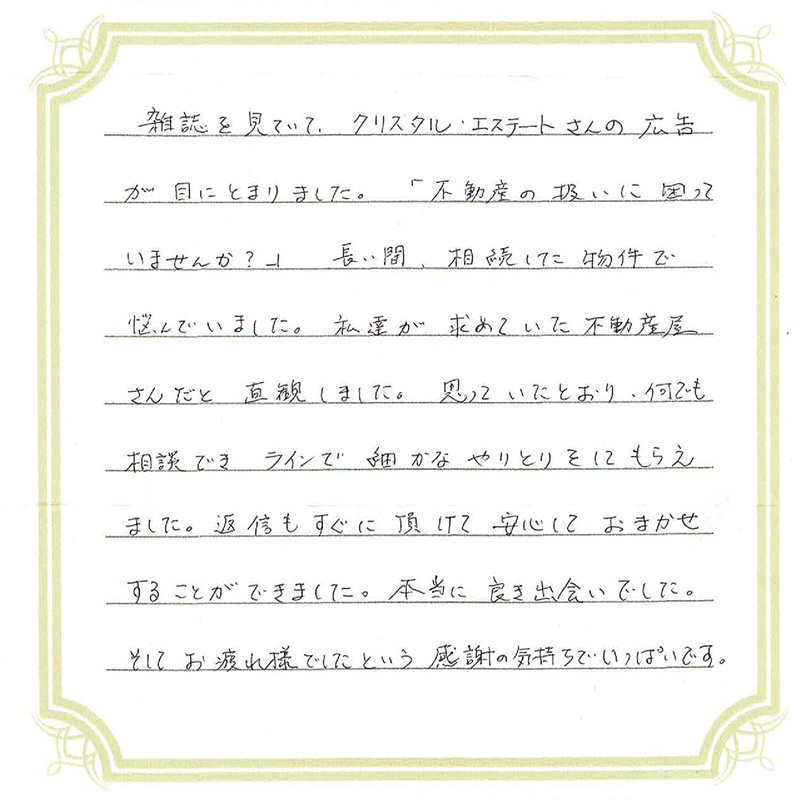 雑誌を見ていて、クリスタル・エステートさんの広告
が目にとまりました。「不動産の扱いに困って
いませんか?」 長い間、相続した物件で
悩んでいました。私達が求めていた不動産屋
さんだと直観しました。思っていたとおり、何でも
相談でき ラインで細かなやりとりをしてもらえ
ました。返信もすぐに頂けて安心しておまかせ
することができました。本当に良き出会いでした。
そしてお疲れ様でしたという感謝の気持ちでいっぱいです。